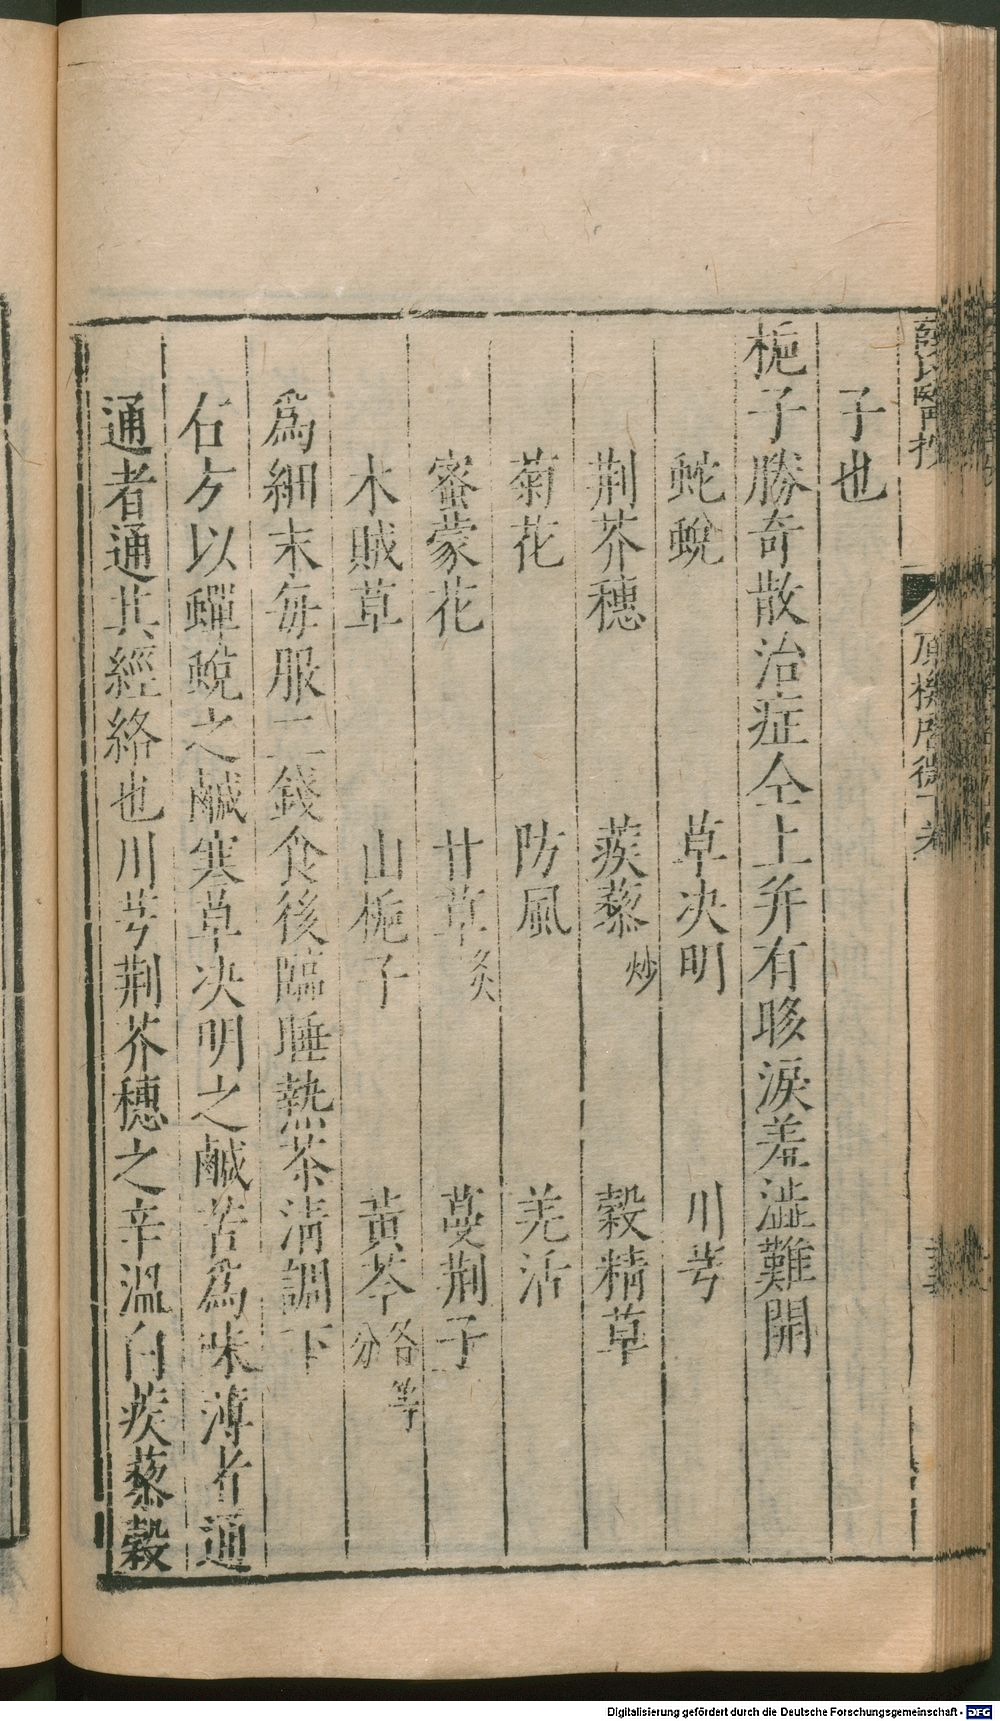 子也
梔子勝奇散治症仝上并有眵淚羞澁難開
蛇蛻 草决明 川芎
荆芥穗 蒺藜炒 穀精草
菊花 防風 羌活
蜜蒙花 甘草炙 蔓荆子
木賊草 山梔子 黄芩各等分
爲細末每服二錢食後臨睡熱茶清調下
右方以蟬蛻之鹹寒草决明之鹹苦爲味薄者通
通者通其經絡也川芎荆芥穗之辛溫白蒺藜穀
薛氏醫按
原機啓微下卷
Digitalisierung gefördert durch die Deutsche Forschungsgemeinschaft - DFG